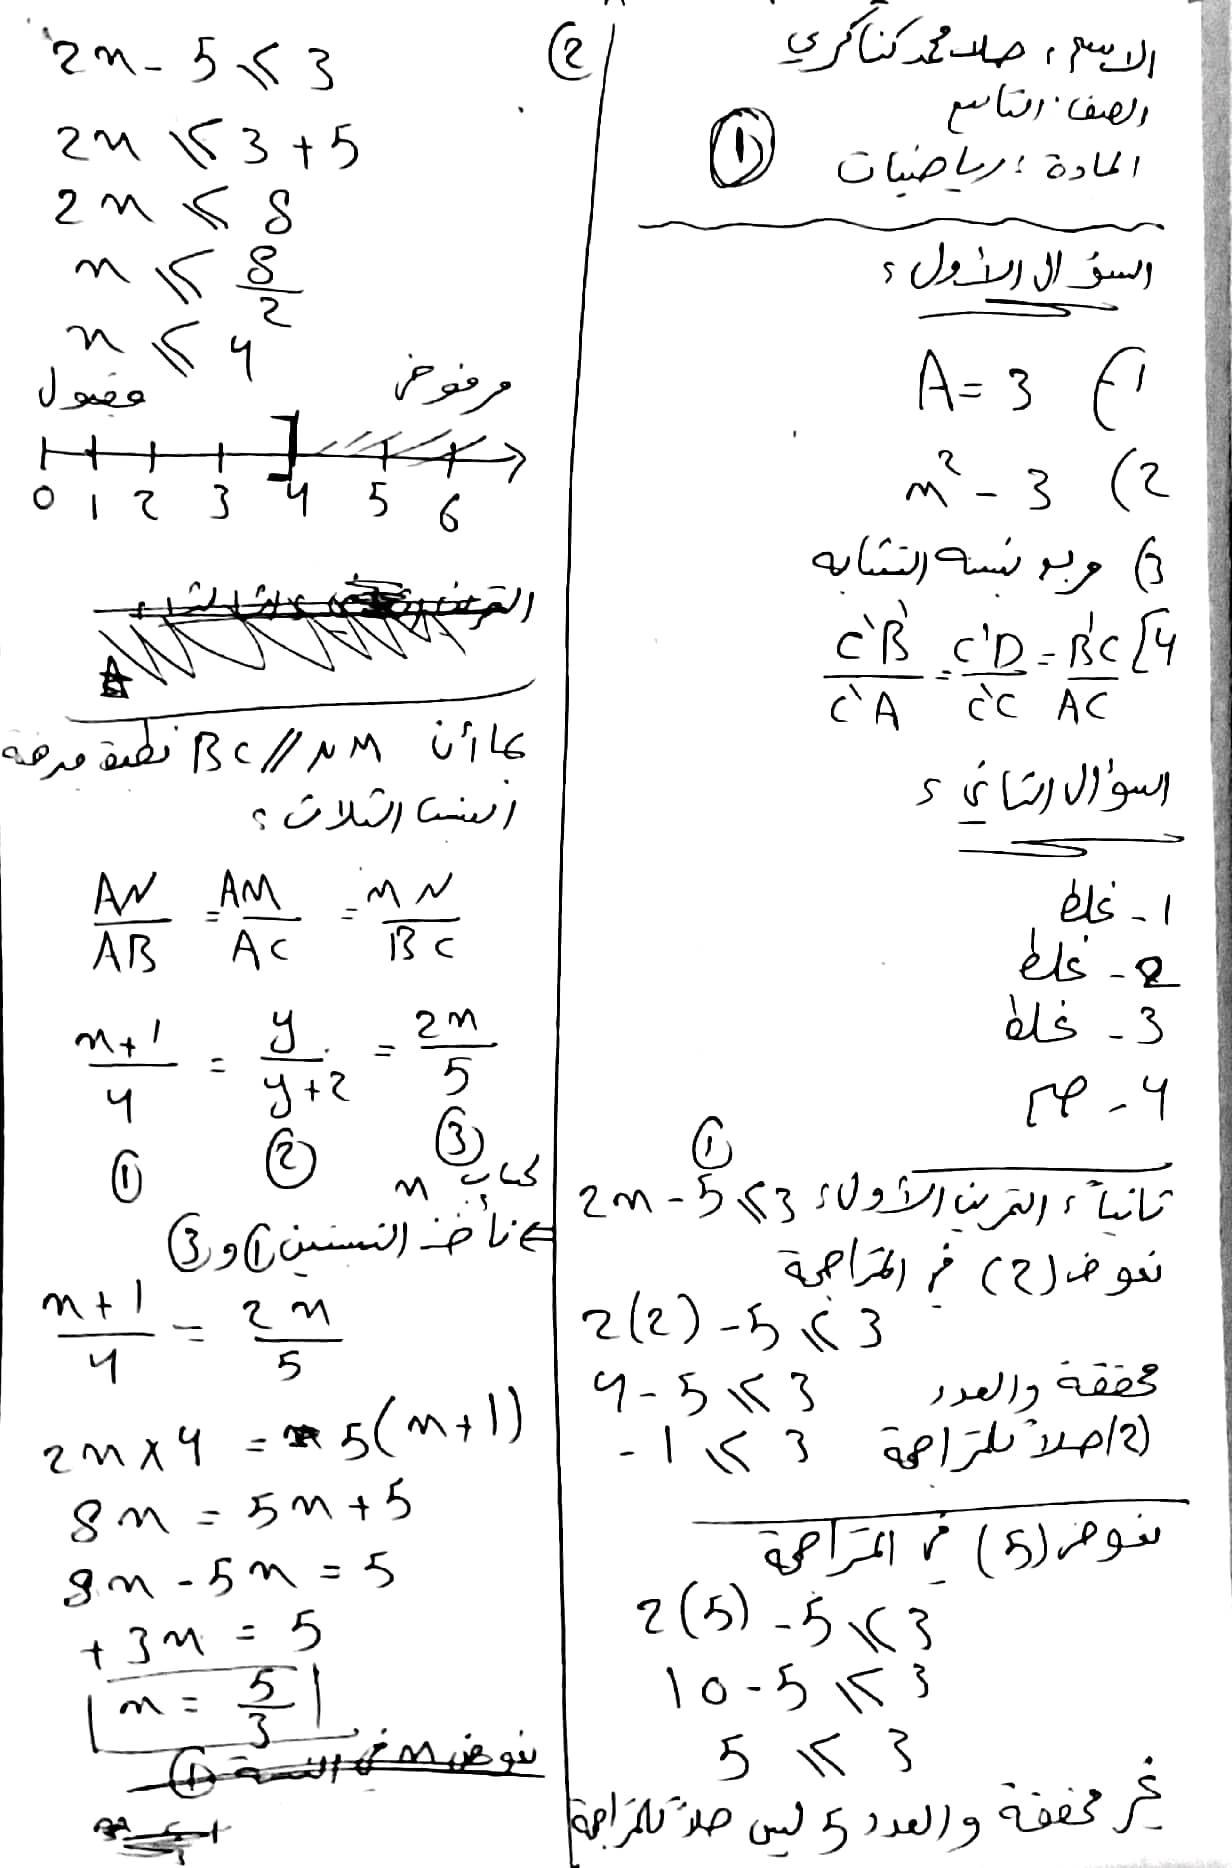 الاسم: حلا محمد كناكري
الصف: التاسع
المادة: رياضيات
①
السؤال الأول:
1) A = 3
2) x² - 3
3) مربع نسبة التشابه
4] C'B'/C'A = C'D/C'C = B'C/AC
السؤال الثاني:
1 - غلط
2 - غلط
3 - غلط
4 - صح
ثانياً: التمرين الأول: 2x - 5 ≤ 3 ①
نعوض (2) في المتراجحة
2(2) - 5 ≤ 3
4 - 5 ≤ 3 محققة والعدد
-1 ≤ 3 (2) حلاً للمتراجحة
نعوض (5) في المتراجحة
2(5) - 5 ≤ 3
10 - 5 ≤ 3
5 ≤ 3
غير محققة والعدد 5 ليس حلاً للمتراجحة
②
2x - 5 ≤ 3
2x ≤ 3 + 5
2x ≤ 8
x ≤ 8/2
x ≤ 4
مقبول مرفوض
0 1 2 3 4 5 6
بما أن BC // NM نطبق مبرهنة
النسب الثلاث:
AN/AB = AM/AC = MN/BC
x+1/4 = y/y+2 = 2x/5
① ② ③
لحساب x
⇐ نأخذ النسبتين ① و ③
x+1/4 = 2x/5
2x × 4 = 5(x+1)
8x = 5x + 5
8x - 5x = 5
+3x = 5
x = 5/3
نعوض x في النسبة ①